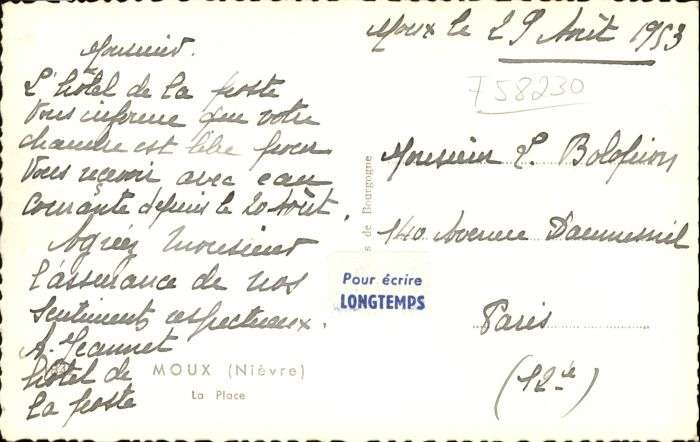 Moux le 29 Août 1953
Monsieur.
L'hôtel de la poste
vous informe que votre
chambre est libre pour
vous reçevoir avec eau
courante depuis le 20 Août.
Agréez Monsieur
l'assurance de nos
sentiments respectueux.
A. Jeannet
hôtel de
la poste
MOUX (Nièvre)
La Place
s de Bourgogne
Pour écrire
LONGTEMPS
758230
Monsieur
140 Avenue Daumesnil
Paris
(12e)